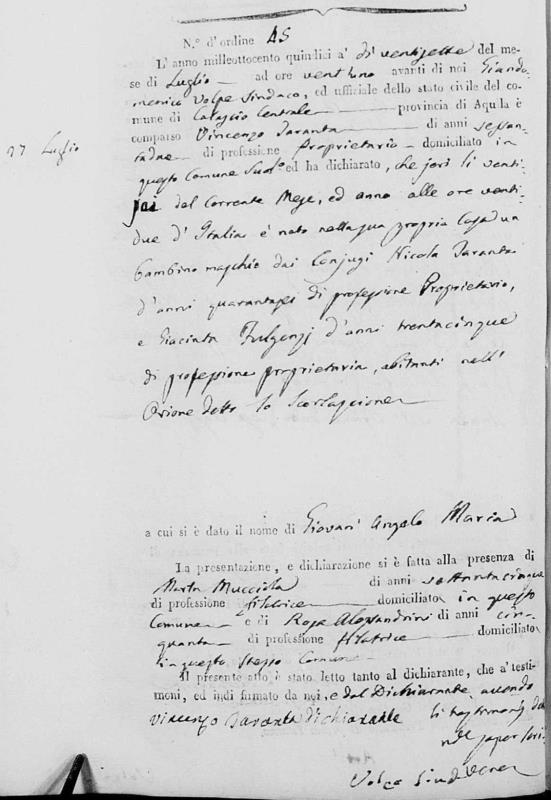 N.° d'ordine 45
L'anno milleottocento quindici a' di ventisette del me-
se di Luglio ad ore ventuno avanti di noi Giando-
menico Volpe Sindaco, ed uffiziale dello stato civile del co-
mune di Centrale provincia di Aquila è
comparso Vincenzo Taranta di anni settan-
tadue di professione Proprietario domiciliato in
27 Luglio
questo Comune ed ha dichiarato, che jeri li venti-
sei del corrente Mese, ed anno alle ore venti-
due d'Italia è nato nella sua propria Casa un
bambino maschio dai Conjugi Nicola Taranta
d'anni quarantasei di professione Proprietario,
e Giacinta Fulgenzj d'anni trentacinque
di professione proprietaria, abitanti nell'
Orione detto lo
a cui si è dato il nome di Giovani Angelo Maria
La presentazione, e dichiarazione si è fatta alla presenza di
Marta Mucciola di anni settantacinque
di professione filatrice domiciliata in questo
Comune e di Rosa Alessandrini di anni cin-
quanta di professione filatrice domiciliata
in questo stesso Comune
Il presente atto è stato letto tanto al dichiarante, che a' testi-
moni, ed indi firmato da noi, e dal Dichiarante avendo
Vincenzo Taranta dichiarante li testimonj detto
non saper scri.
Volpe Sindaco